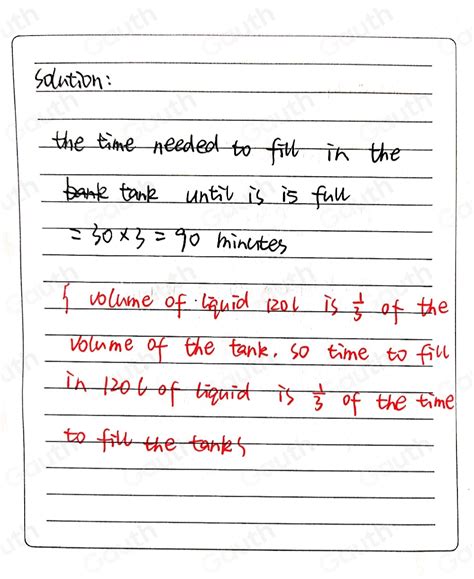 Solution:
the time needed to fill in the
bank tank until is is full
= 30 × 3 = 90 minutes
{ volume of liquid 120l is 1/3 of the
volume of the tank. so time to fill
in 120l of liquid is 1/3 of the time
to fill the tank}